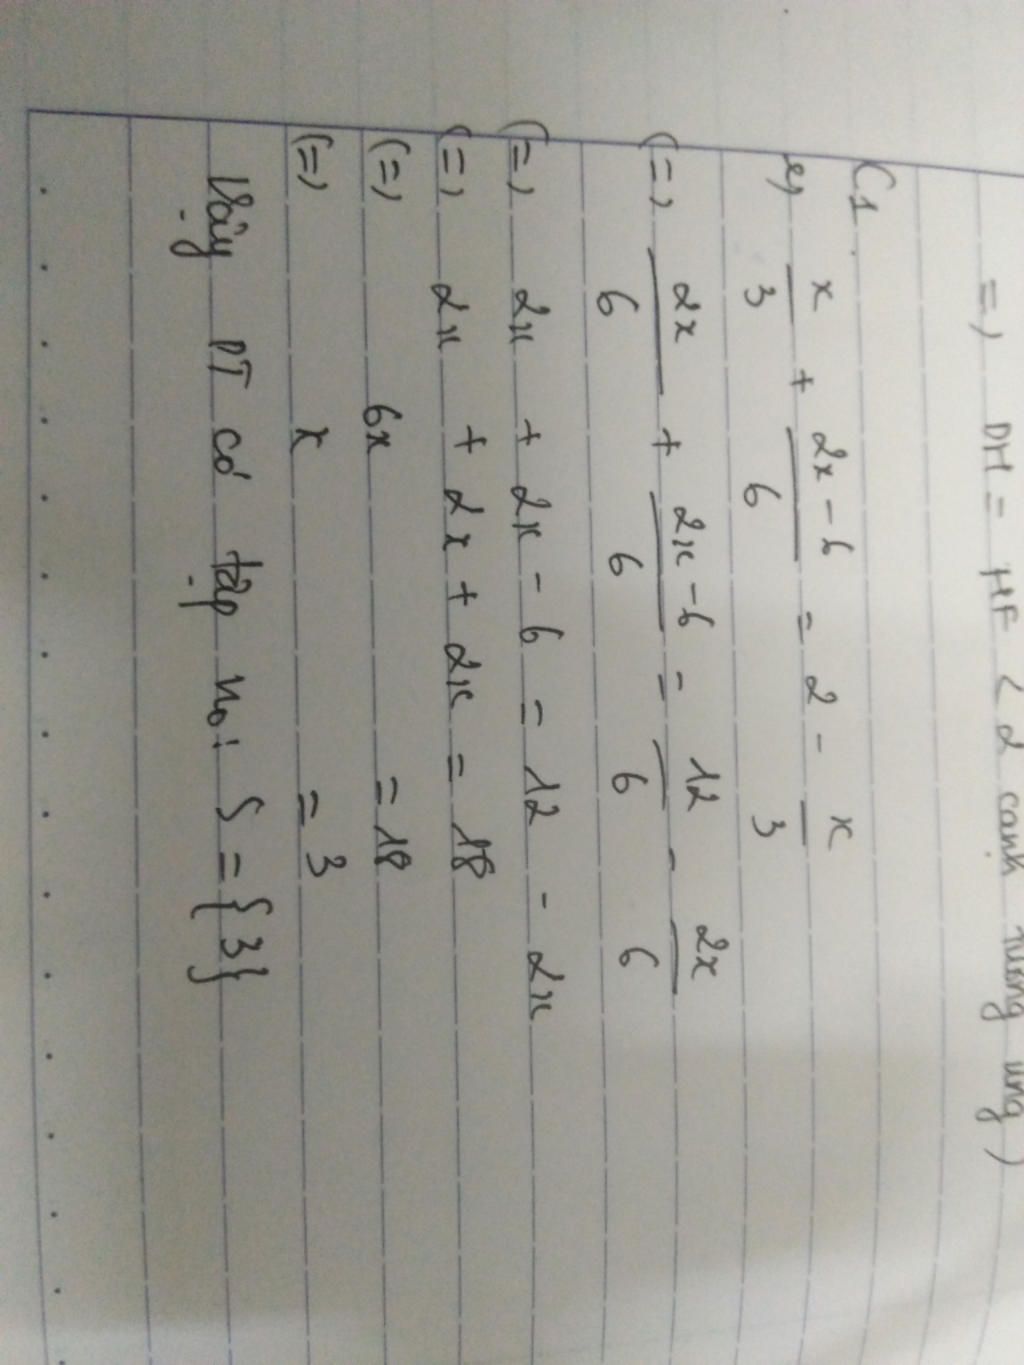 =) DH = HF ( 2 cạnh tương ứng )
C1
e, x/3 + (2x - 6)/6 = 2 - x/3
(=) 2x/6 + (2x - 6)/6 = 12/6 - 2x/6
(=) 2x + 2x - 6 = 12 - 2x
(=) 2x + 2x + 2x = 18
(=) 6x = 18
(=) x = 3
Vậy PT có tập no: S = {3}